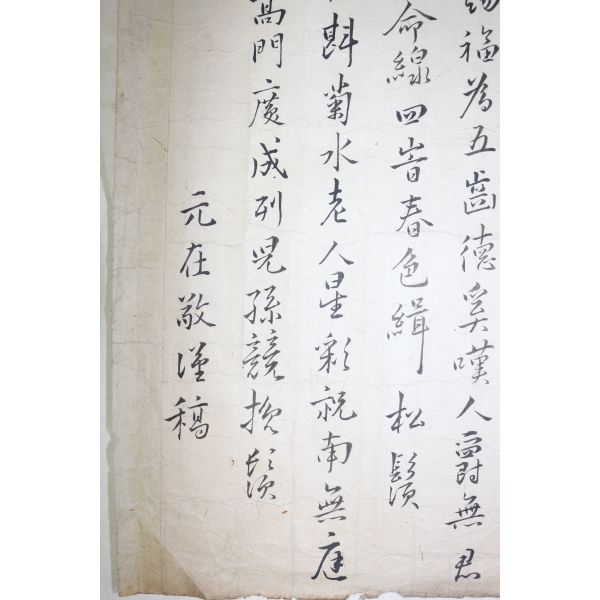 福為五齒德奚嘆人爵無君
命線四時春色緝松鬚
斟菊水老人星彩祝南無庭
高門廣成列兒孫競挽鬚
元在敬謹稿